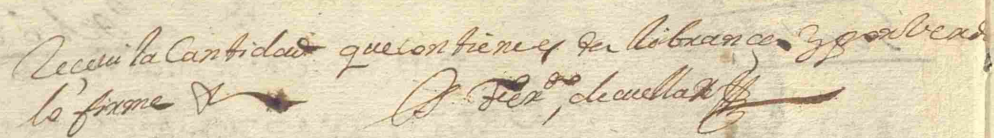 Receui la Cantidad que contiene esta libranza y por verd
lo firme Fer.do de cuellar